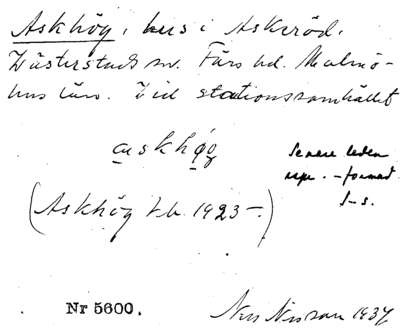 Askhög, hus i Askeröd,
Västerstads sn. Färs hd. Malmö-
hus län. Vid stationssamhället
askhög
Senare leden
repr. -format.
S-s.
(Askhög tb. 1923-.)
Nr 5600.
Nils Nilsson 1937